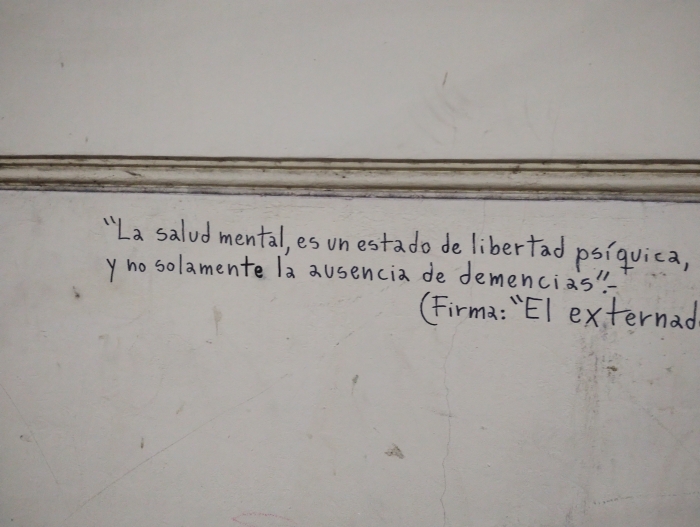 "La salud mental, es un estado de libertad psíquica,
y no solamente la ausencia de demencias".-
(Firma: "El externad